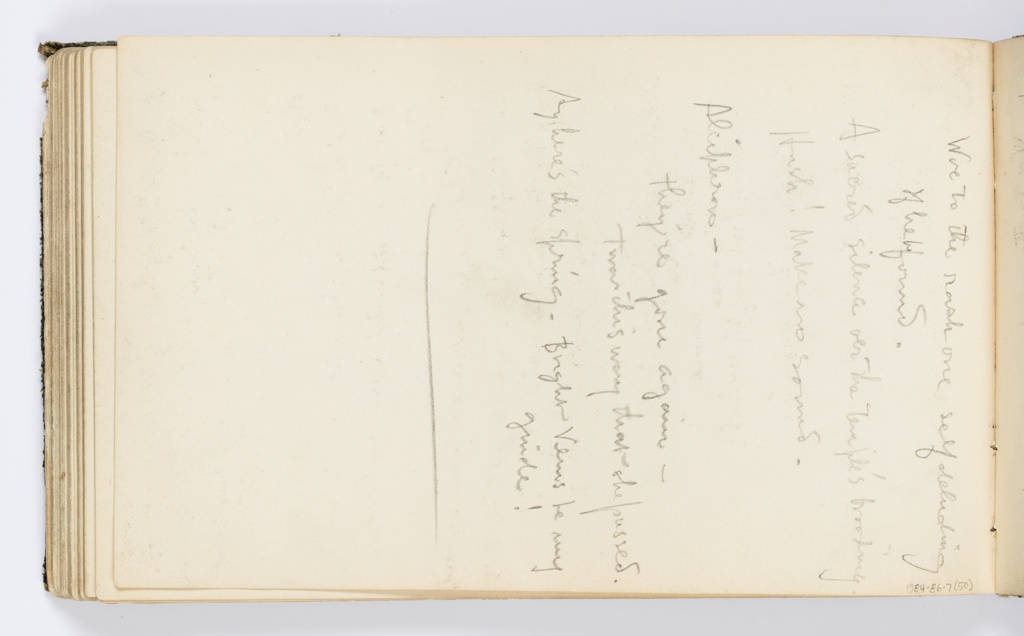 Woe to the rash one self deluding
If he be found.
A sacred silence over the temple's brooding
Hush! Make no sound.
Alciphron –
They're gone again –
Twas this way that she passed.
Ay, here's the spring – Bright Venus be my
guide!
1984-86-7(50)